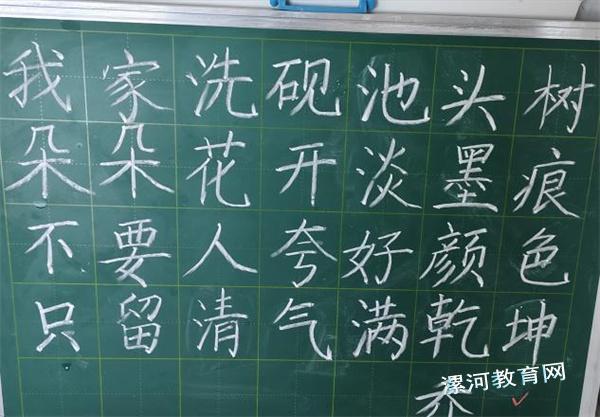 我家洗砚池头树
朵朵花开淡墨痕
不要人夸好颜色
只留清气满乾坤
漯河教育网